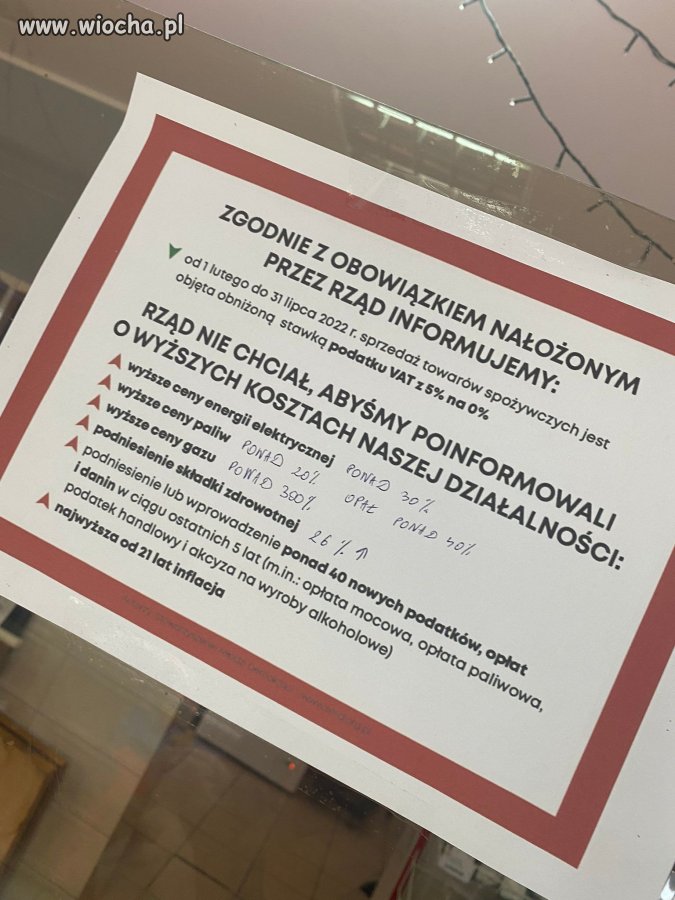 www.wiocha.pl
ZGODNIE Z OBOWIĄZKIEM NAŁOŻONYM
PRZEZ RZĄD INFORMUJEMY:
od 1 lutego do 31 lipca 2022 r. sprzedaż towarów spożywczych jest
objęta obniżoną stawką podatku VAT z 5% na 0%
RZĄD NIE CHCIAŁ, ABYŚMY POINFORMOWALI
O WYŻSZYCH KOSZTACH NASZEJ DZIAŁALNOŚCI:
wyższe ceny energii elektrycznej PONAD 30%
wyższe ceny paliw PONAD 20% OPAŁ PONAD 40%
wyższe ceny gazu PONAD 300%
podniesienie składki zdrowotnej 26% ↑
podniesienie lub wprowadzenie ponad 40 nowych podatków, opłat
i danin w ciągu ostatnich 5 lat (m.in.: opłata mocowa, opłata paliwowa,
podatek handlowy i akcyza na wyroby alkoholowe)
najwyższa od 21 lat inflacja